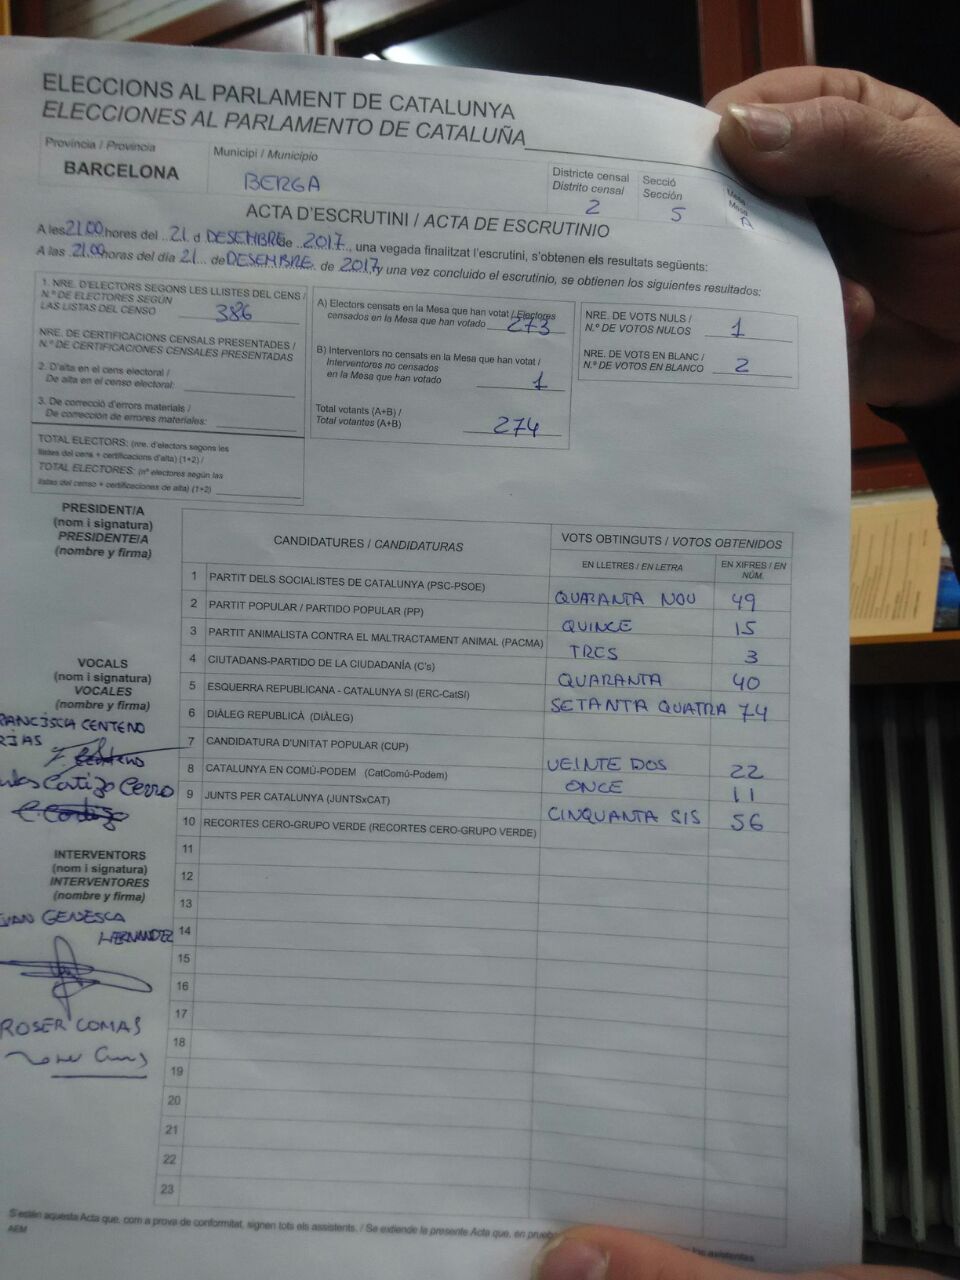 ELECCIONS AL PARLAMENT DE CATALUNYA
ELECCIONES AL PARLAMENTO DE CATALUÑA
Província / Provincia
BARCELONA
Municipi / Municipio
BERGA
Districte censal
Distrito censal
2
Secció
Sección
5
Mesa
Mesa
A
ACTA D'ESCRUTINI / ACTA DE ESCRUTINIO
A les 21.00 hores del 21 d DESEMBRE de 2017, una vegada finalitzat l'escrutini, s'obtenen els resultats següents:
A las 21.00 horas del día 21 de DESEMBRE de 2017 y una vez concluido el escrutinio, se obtienen los siguientes resultados:
1. NRE. D'ELECTORS SEGONS LES LLISTES DEL CENS /
N.º DE ELECTORES SEGÚN
LAS LISTAS DEL CENSO 386
NRE. DE CERTIFICACIONS CENSALS PRESENTADES /
N.º DE CERTIFICACIONES CENSALES PRESENTADAS
2. D'alta en el cens electoral /
De alta en el censo electoral:
3. De correcció d'errors materials /
De corrección de errores materiales:
TOTAL ELECTORS: (nre. d'electors segons les
llistes del cens + certificacions d'alta) (1+2) /
TOTAL ELECTORES: (nº electores según las
listas del censo + certificaciones de alta) (1+2)
A) Electors censats en la Mesa que han votat / Electores
censados en la Mesa que han votado 273
B) Interventors no censats en la Mesa que han votat /
Interventores no censados
en la Mesa que han votado 1
Total votants (A+B) /
Total votantes (A+B) 274
NRE. DE VOTS NULS /
N.º DE VOTOS NULOS 1
NRE. DE VOTS EN BLANC /
N.º DE VOTOS EN BLANCO 2
PRESIDENT/A
(nom i signatura)
PRESIDENTE/A
(nombre y firma)
CANDIDATURES / CANDIDATURAS
VOTS OBTINGUTS / VOTOS OBTENIDOS
EN LLETRES / EN LETRA
EN XIFRES / EN
NÚM.
1 PARTIT DELS SOCIALISTES DE CATALUNYA (PSC-PSOE) QUARANTA NOU 49
2 PARTIT POPULAR / PARTIDO POPULAR (PP) QUINCE 15
3 PARTIT ANIMALISTA CONTRA EL MALTRACTAMENT ANIMAL (PACMA) TRES 3
4 CIUTADANS-PARTIDO DE LA CIUDADANÍA (C's) QUARANTA 40
5 ESQUERRA REPUBLICANA - CATALUNYA SI (ERC-CatSI) SETANTA QUATRA 74
6 DIÀLEG REPUBLICÀ (DIÀLEG)
7 CANDIDATURA D'UNITAT POPULAR (CUP) VEINTE DOS 22
8 CATALUNYA EN COMÚ-PODEM (CatComú-Podem) ONCE 11
9 JUNTS PER CATALUNYA (JUNTSxCAT) CINQUANTA SIS 56
10 RECORTES CERO-GRUPO VERDE (RECORTES CERO-GRUPO VERDE)
11
12
13
14
15
16
17
18
19
20
21
22
23
VOCALS
(nom i signatura)
VOCALES
(nombre y firma)
FRANCISCA CENTENO
RIAS
Cortizo Cerro
INTERVENTORS
(nom i signatura)
INTERVENTORES
(nombre y firma)
IVAN GENESCA
HERNANDEZ
ROSER COMAS
S'estén aquesta Acta que, com a prova de conformitat, signen tots els assistents. / Se extiende la presente Acta que, en prueba los asistentes
AEM